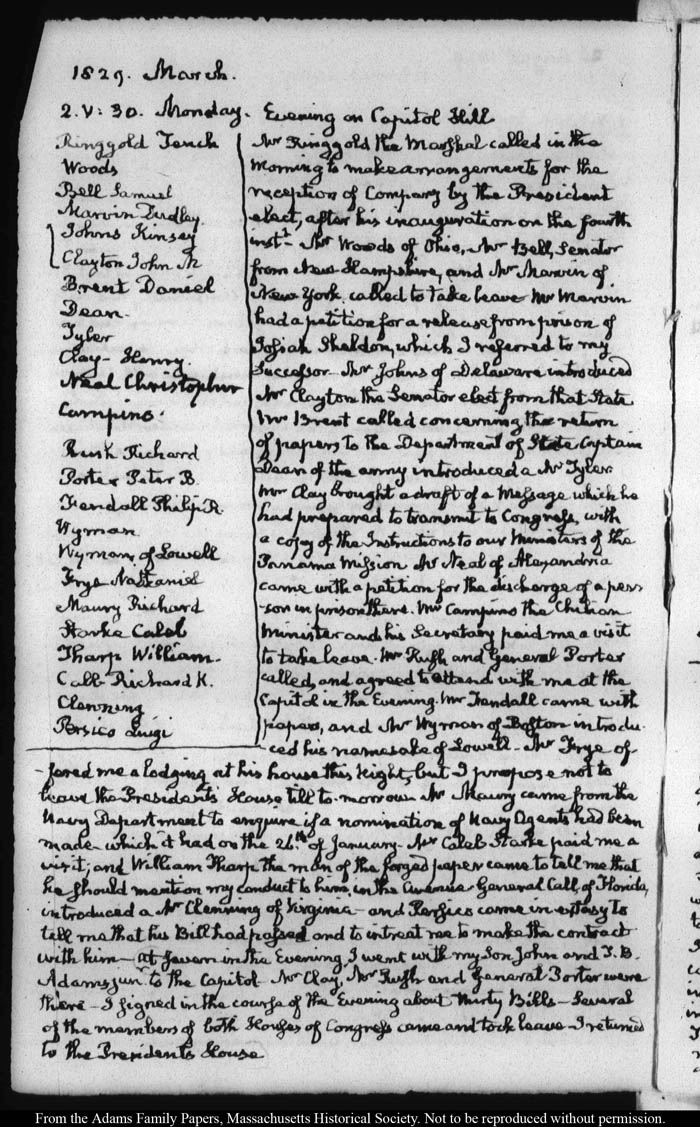 1829. March.
2. V: 30. Monday. Evening on Capitol Hill
Ringgold Tench
Woods
Bell Samuel
Marvin Dudley
Johns Kinsey
Clayton John M
Brent Daniel
Dean.
Tyler
Clay- Henry.
Neal Christopher
Campino.
Rush Richard
Porter Peter B.
Fendall Philip R.
Wyman
Wyman, of Lowell
Frye Nathaniel
Maury Richard
Starke Caleb
Tharp William.
Call Richard K.
Clenning
Persico Luigi
Mr Ringgold the Marshal called in the
morning to make arrangements for the
reception of Company by the President
elect, after his inauguration on the fourth
instt. Mr Woods of Ohio, Mr Bell, Senator
from New Hampshire, and Mr Marvin of
New York called to take leave Mr Marvin
had a petition for a release from prison of
Josiah Sheldon, which I referred to my
Successor- Mr Johns of Delaware introduced
Mr Clayton the Senator elect from that State
Mr Brent called concerning the return
of papers to the Department of State Captain
Dean of the army introduced a Mr Tyler
Mr Clay brought a draft of a Message which he
had prepared to transmit to Congress, with
a copy of the Instructions to our Ministers of the
Panama Mission Mr Neal of Alexandria
came with a petition for the discharge of a per-
-son in prison there. Mr Campino the Chilian
Minister and his Secretary paid me a visit
to take leave. Mr Rush and General Porter
called, and agreed to attend with me at the
Capitol in the Evening. Mr Fendall came with
papers, and Mr Wyman of Boston introdu-
-ced his namesake of Lowell- Mr Frye of-
-fered me a lodging at his house this Night, but I propose not to
leave the President's House till to-morrow Mr Maury came from the
Navy Department to enquire if a nomination of Navy Agents had been
made- which it had on the 26th of January- Mr Caleb Starke paid me a
visit; and William Tharp the man of the forged paper came to tell me that
he should mention my conduct to him, in the Avenue- General Call, of Florida,
introduced a Mr Clenning of Virginia- and Persico came in extasy to
tell me that his Bill had passed and to intreat me to make the contract
with him- At seven in the Evening I went with my Son John and T. B.
Adams junr to the Capitol- Mr Clay, Mr Rush and General Porter were
there- I signed in the course of the Evening about thirty Bills- Several
of the members of both Houses of Congress came and took leave- I returned
to the Presidents House
From the Adams Family Papers, Massachusetts Historical Society. Not to be reproduced without permission.